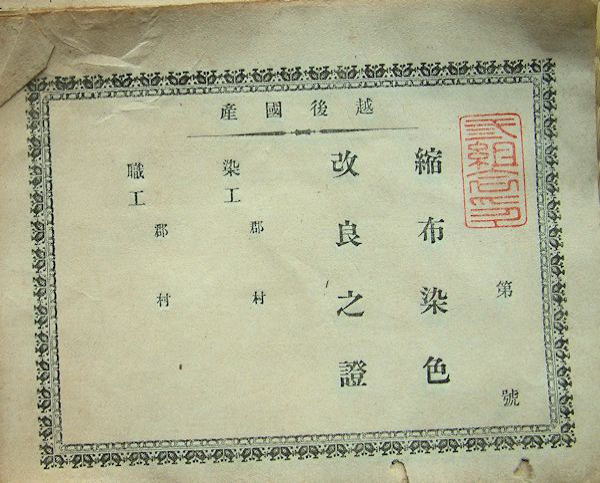 越後國產
第 號
縮布染色
改良之證
染工 郡 村
職工 郡 村